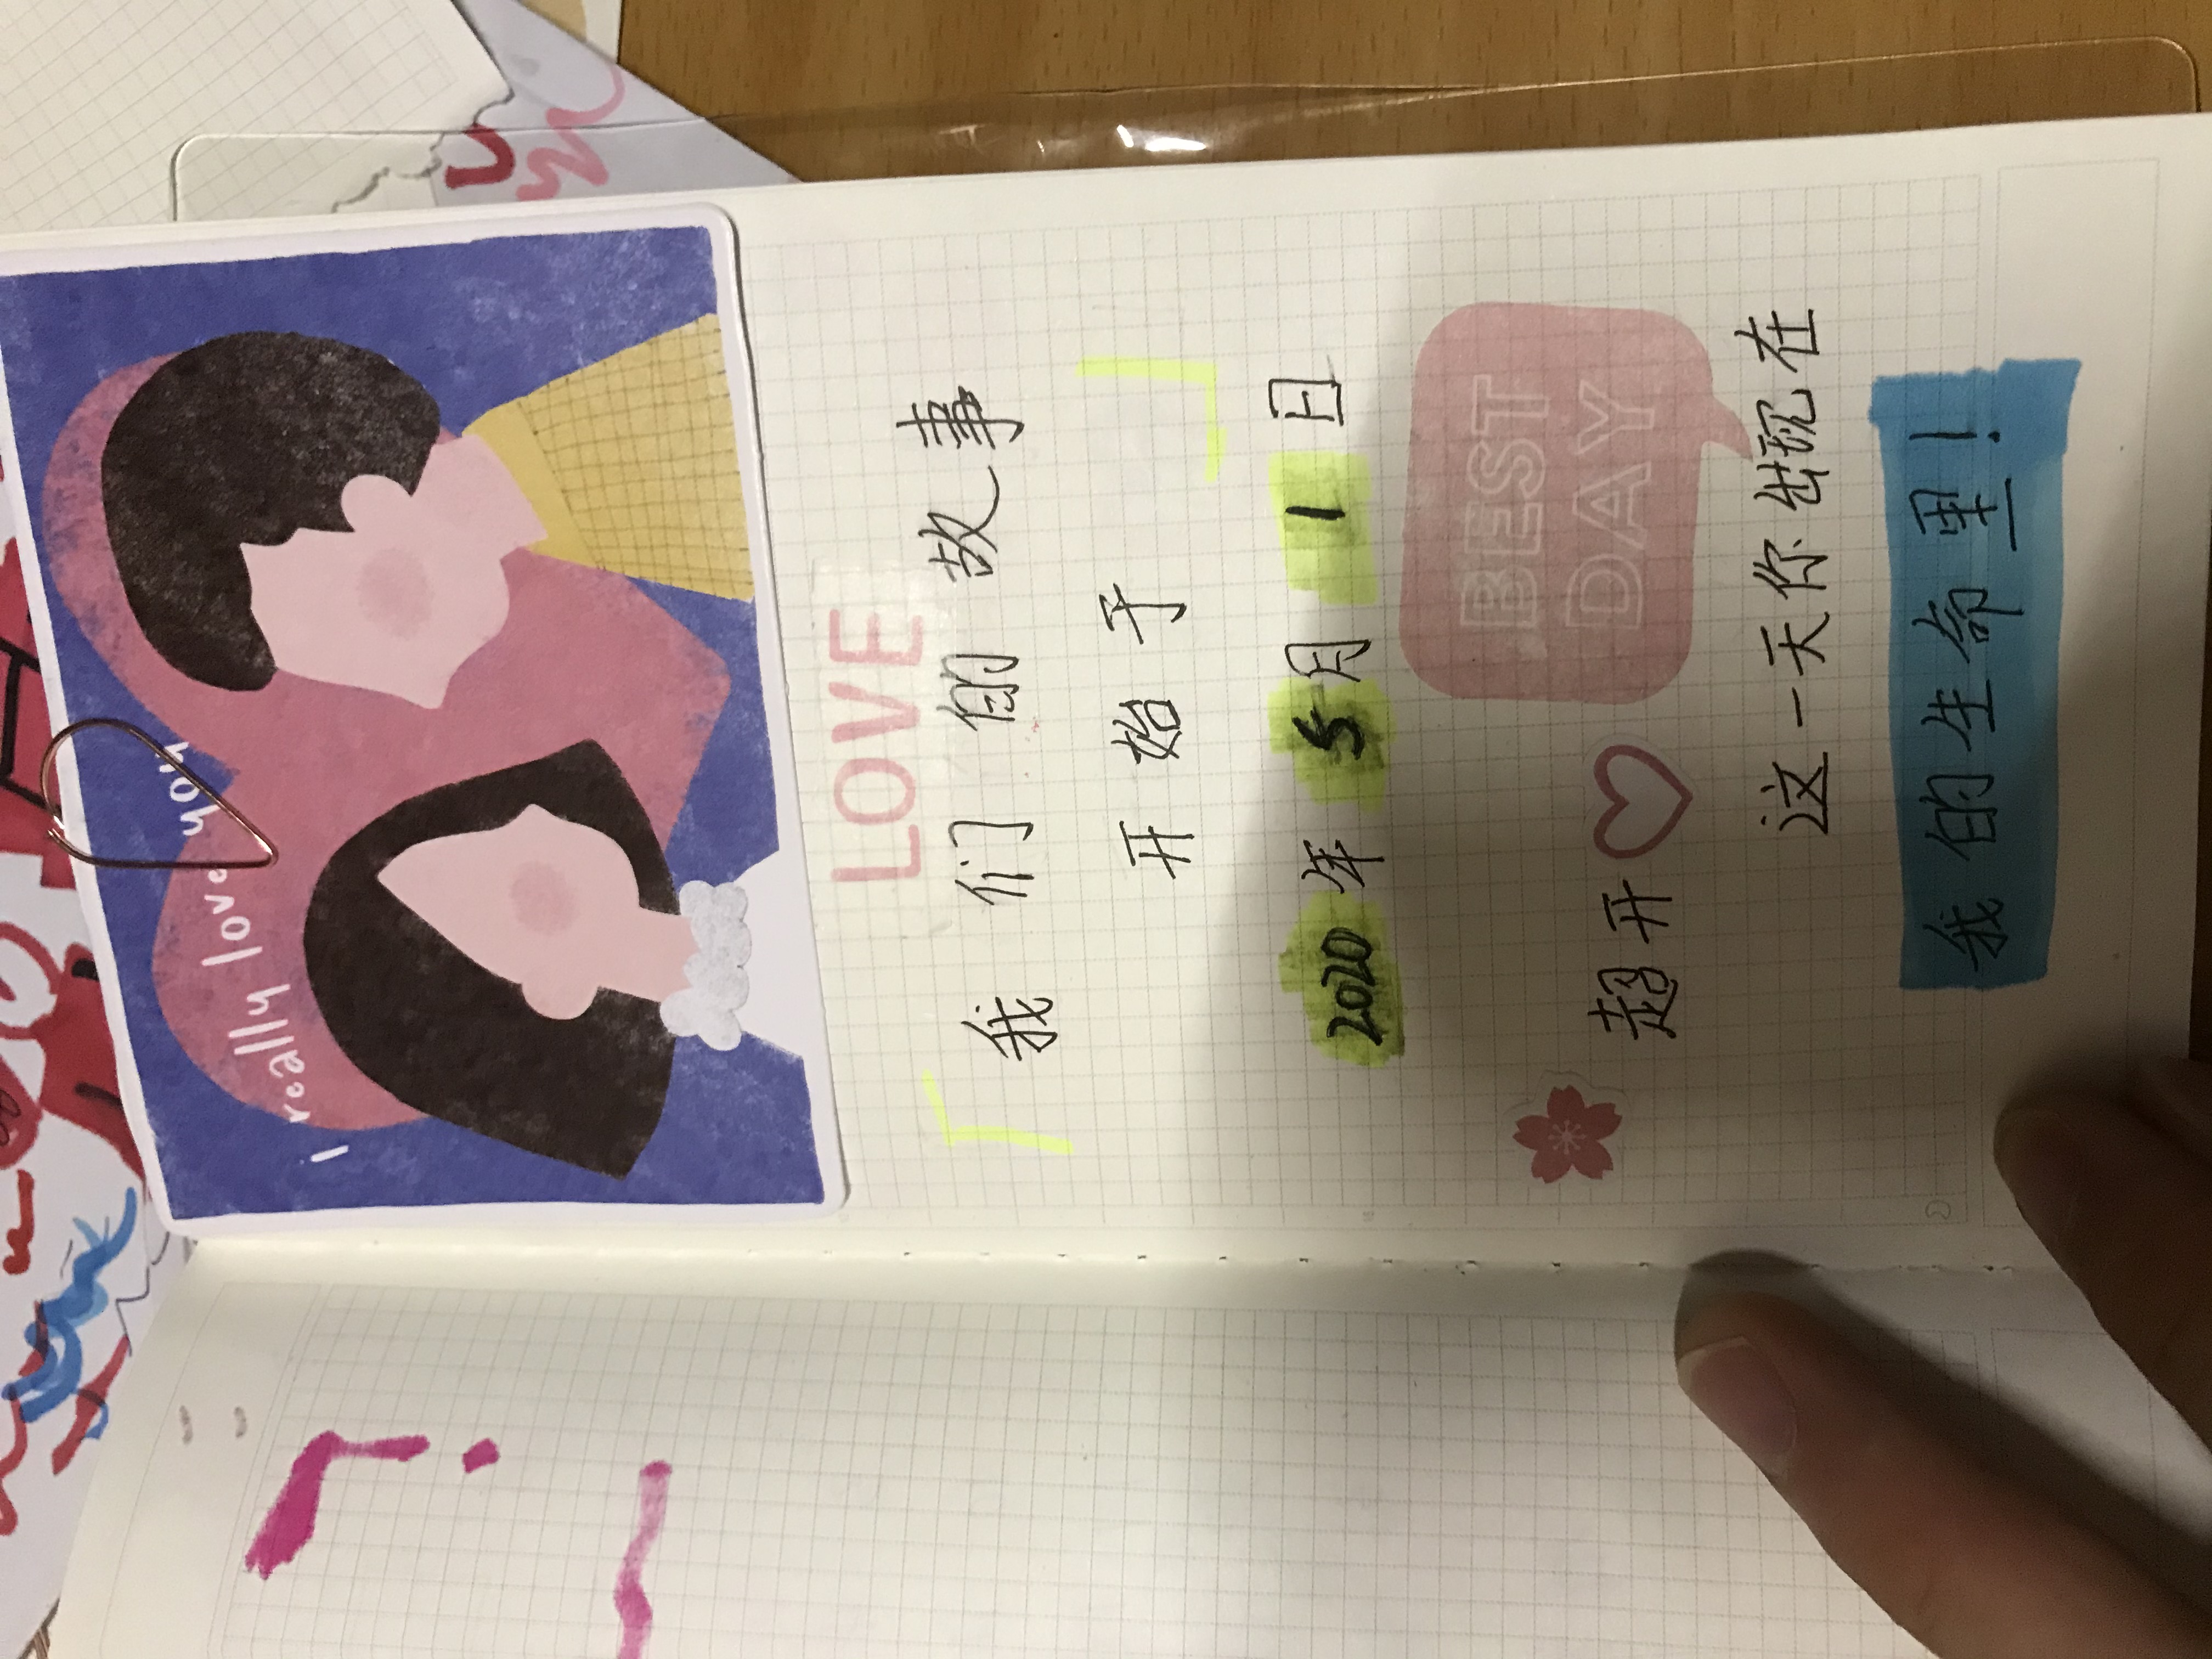 i really love you
LOVE
我们的故事
开始于
2020年5月1日
BEST
DAY
超开
这一天你出现在
我的生命里!